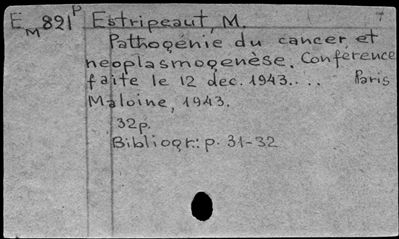 E M 821 P Estripeaut, M.
Pathogénie du cancer et
neoplasmogenèse. Conférence
faite le 12 dec. 1943.... Paris
Maloine, 1943.
32p.
Bibliogr: p. 31-32